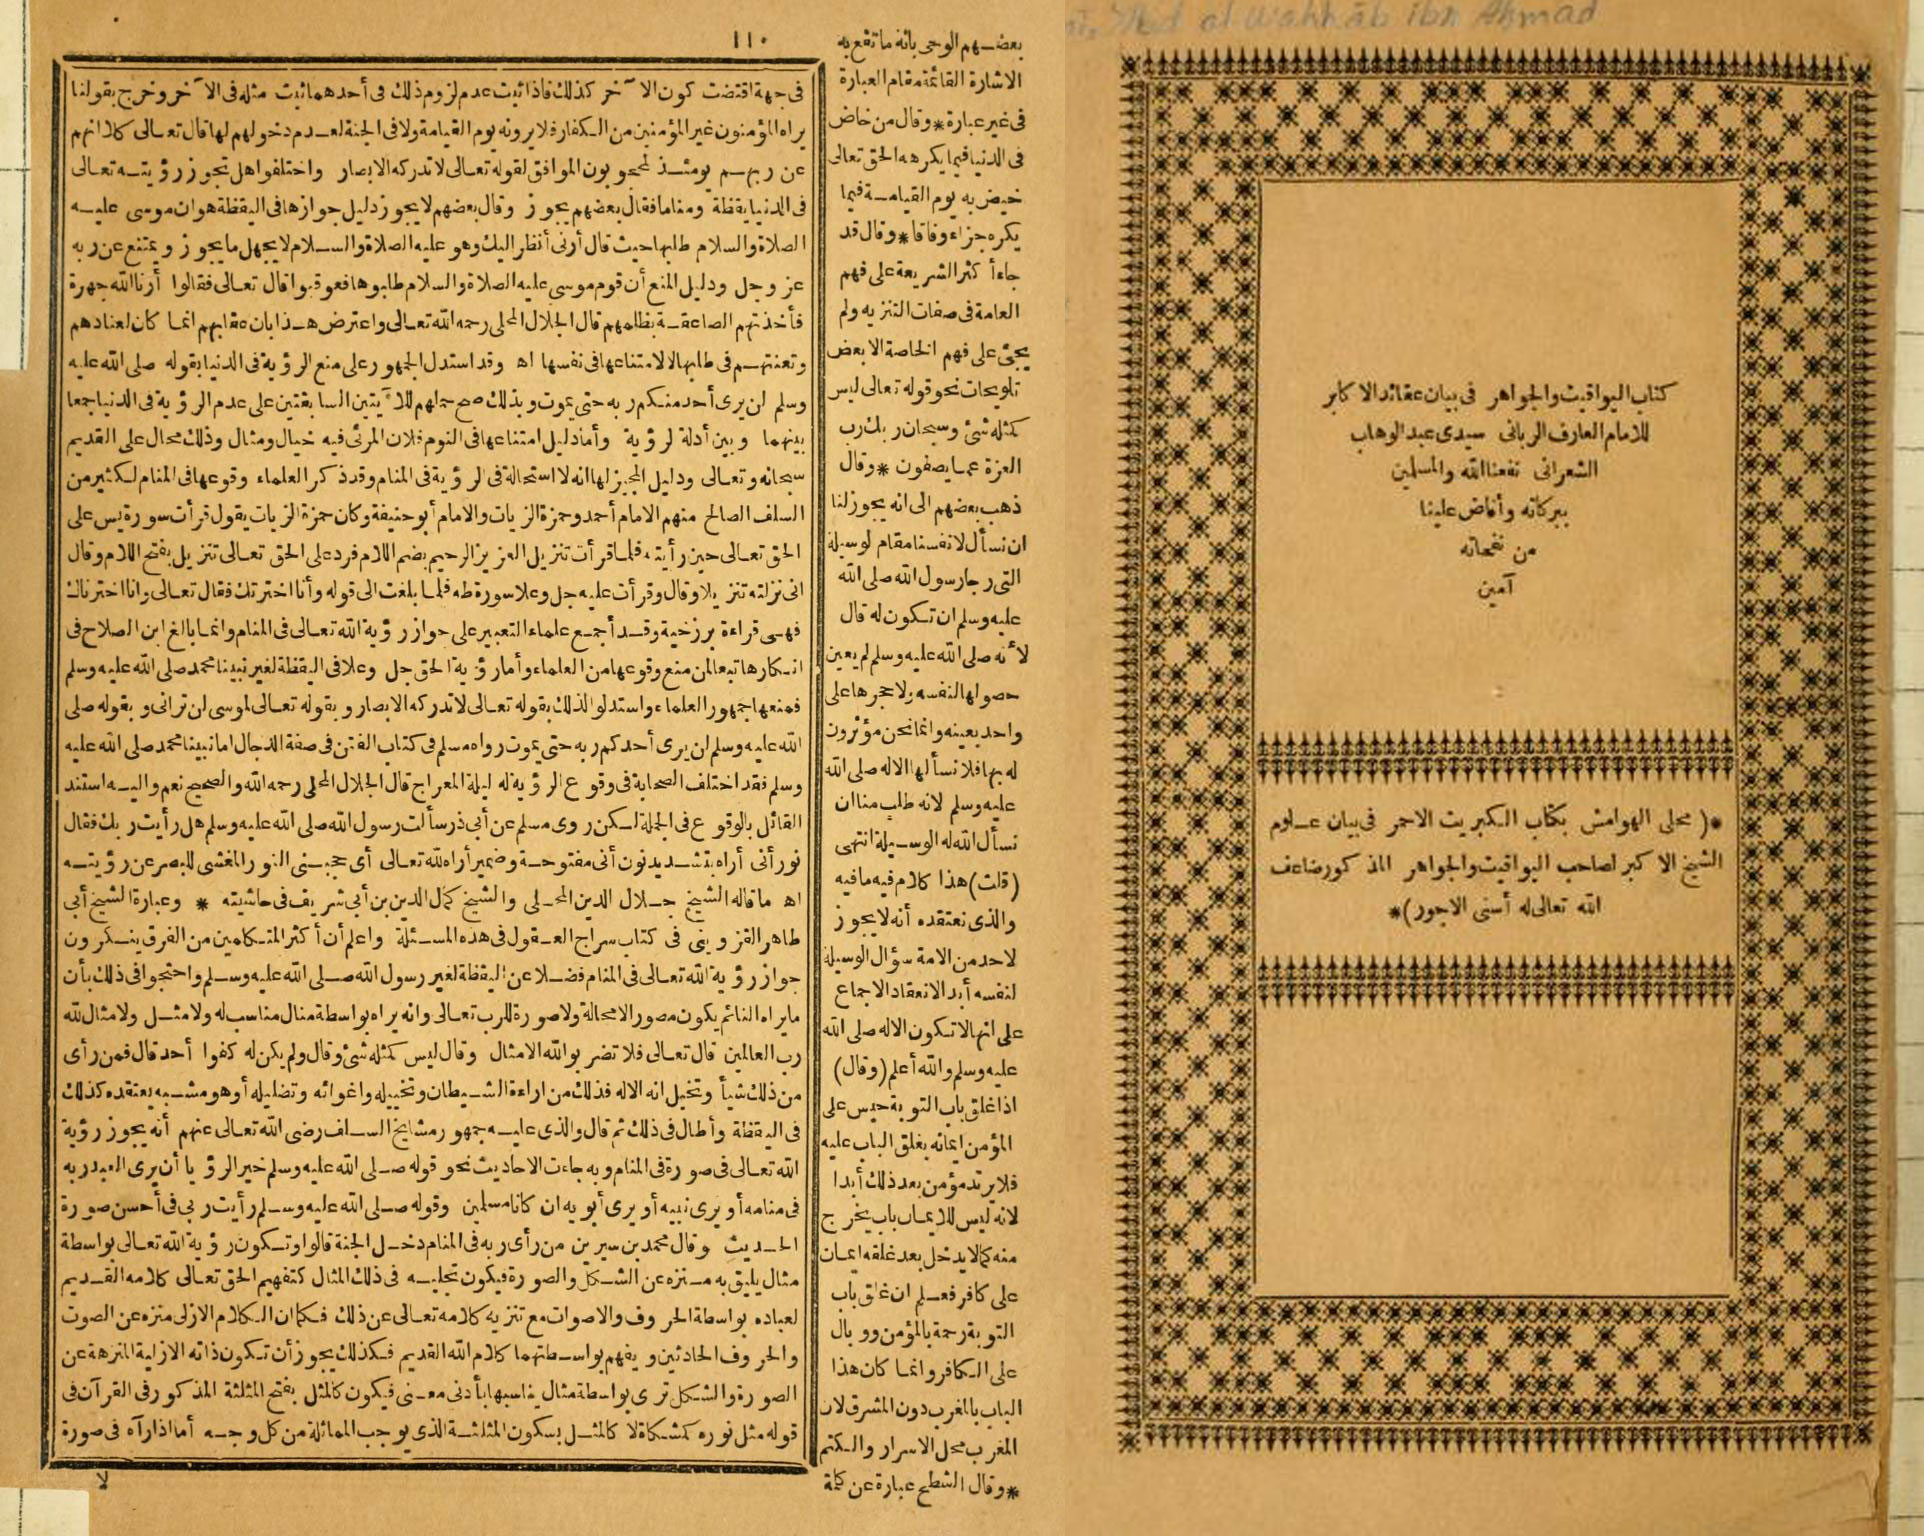 كتاب اليواقيت والجواهر فى بيان عقائد الاكابر
للامام العارف الربانى سيدى عبد الوهاب
الشعرانى نفعنا الله والمسلمين
ببركاته وأفاض علينا
من نفحاته
آمين
*( محلى الهوامش بكتاب الكبريت الاحمر فى بيان علوم
الشيخ الاكبر لصاحب اليواقيت والجواهر المذكور ضاعف
الله تعالى له أسنى الاجور)*
al Wahhāb ibn Ahmad
١١٠
بعضهم الوحى بانه ما تقع به
الاشارة القائمة مقام العبارة
فى غير عبارة * وقال من خاض
فى الدنيا فيما يكرهه الحق تعالى
خيض به يوم القيامة فيما
يكره جزاء وفاقا * وقال قد
جاء أكثر الشريعة على فهم
العامة فى صفات التنزيه ولم
يجئ على فهم الخاصة الا بعض
تلويحات نحو قوله تعالى ليس
كمثله شئ وسبحان ربك رب
العزة عما يصفون * وقال
ذهب بعضهم الى انه يجوز لنا
ان نسأل لانفسنا مقام لوسيلة
التى رجا رسول الله صلى الله
عليه وسلم ان تكون له قال
لأنه صلى الله عليه وسلم لم يعين
حصولها لنفسه ولا حجرها على
واحد بعينه وانما نحن مؤثرون
له بها فلا نسألها الا له صلى الله
عليه وسلم لانه طلب منا ان
نسأل الله له الوسيلة انتهى
(قلت) هذا كلام فيه ما فيه
والذى نعتقده أنه لا يجوز
لاحد من الامة سؤال الوسيلة
لنفسه أبدا لانعقاد الاجماع
على انها لا تكون الا له صلى الله
عليه وسلم والله أعلم (وقال)
اذا غلق باب التوبة حبس على
المؤمن ايمانه بغلق الباب عليه
فلا يرتد مؤمن بعد ذلك أبدا
لانه ليس للايمان باب يخرج
منه كما لا يدخل بعد غلقه ايمان
على كافر فعلم ان غلق باب
التوبة رحمة بالمؤمن ووبال
على الكافر وانما كان هذا
الباب بالمغرب دون المشرق لان
المغرب محل الاسرار والكتم
* وقال الشطح عبارة عن كلمة
فى جهة اقتضت كون الآخر كذلك فاذا ثبت عدم لزوم ذلك فى أحدهما ثبت مثله فى الآخر وخرج بقولنا
يراه المؤمنون غير المؤمنين من الكفار فلا يرونه يوم القيامة ولا فى الجنة لعدم دخولهم لها قال تعالى كلا انهم
عن ربهم يومئذ لمحجوبون الموافق لقوله تعالى لا تدركه الابصار واختلفوا هل تجوز رؤيته تعالى
فى الدنيا يقظة ومناما فقال بعضهم يجوز وقال بعضهم لا يجوز دليل جوازها فى اليقظة هو ان موسى عليه
الصلاة والسلام طلبها حيث قال أرنى أنظر اليك وهو عليه الصلاة والسلام لا يجهل ما يجوز ويمتنع عن ربه
عز وجل ودليل المنع أن قوم موسى عليه الصلاة والسلام طلبوها فعوقبوا قال تعالى فقالوا أرنا الله جهرة
فأخذتهم الصاعقة بظلمهم قال الجلال المحلى رحمه الله تعالى واعترض هذا بان عقابهم انما كان لعنادهم
وتعنتهم فى طلبها لا لامتناعها فى نفسها اه وقد استدل الجمهور على منع الرؤية فى الدنيا بقوله صلى الله عليه
وسلم لن يرى أحد منكم ربه حتى يموت وبذلك صح حملهم للآيتين السابقتين على عدم الرؤية فى الدنيا جمعا
بينهما وبين أدلة لرؤية وأما دليل امتناعها فى النوم فلان المرئى فيه خيال ومثال وذلك محال على القديم
سبحانه وتعالى ودليل المجيز لها انه لا استحالة فى لرؤية فى المنام وقد ذكر العلماء وقوعها فى المنام لكثير من
السلف الصالح منهم الامام أحمد وحمزة الزيات والامام أبو حنيفة وكان حمزة الزيات يقول قرأت سورة يس على
الحق تعالى حين رأيته فلما قرأت تنزيل العزيز الرحيم بضم اللام فرد على الحق تعالى تنزيل بفتح اللام وقال
انى نزلته تنزيلا وقال وقرأت عليه جل وعلا سورة طه فلما بلغت الى قوله وأنا اخترتك فقال تعالى وانا اخترناك
فهى قراءة برزخية وقد أجمع علماء التعبير على جواز رؤية الله تعالى فى المنام وانما بالغ ابن الصلاح فى
انكارها تبعا لمن منع وقوعها من العلماء وأما رؤية الحق جل وعلا فى اليقظة لغير نبينا محمد صلى الله عليه وسلم
فمنعها جمهور العلماء واستدلوا لذلك بقوله تعالى لا تدركه الابصار وبقوله تعالى لموسى لن ترانى وبقوله صلى
الله عليه وسلم لن يرى أحدكم ربه حتى يموت رواه مسلم فى كتاب الفتن فى صفة الدجال اما نبينا محمد صلى الله عليه
وسلم فقد اختلف الصحابة فى وقوع الرؤية له ليلة المعراج قال الجلال المحلى رحمه الله والصحيح نعم واليه استند
القائل بالوقوع فى الجملة لكن روى مسلم عن أبى ذر سألت رسول الله صلى الله عليه وسلم هل رأيت ربك فقال
نور أنى أراه بتشديد نون أنى مفتوحة وضمير أراه لله تعالى أى حجبنى النور المغشى للبصر عن رؤيته
اه ما قاله الشيخ جلال الدين المحلى والشيخ كمال الدين بن أبى شريف فى حاشيته * وعبارة الشيخ أبى
طاهر القزوينى فى كتاب سراج العقول فى هذه المسئلة واعلم أن أكثر المتكلمين من الفرق ينكرون
جواز رؤية الله تعالى فى المنام فضلا عن اليقظة لغير رسول الله صلى الله عليه وسلم واحتجوا فى ذلك بأن
ما يراه النائم يكون مصورا لا محالة ولا صورة للرب تعالى وانه يراه بواسطة مثال مناسب له ولا مثل ولا مثال لله
رب العالمين قال تعالى فلا تضربوا لله الامثال وقال ليس كمثله شئ وقال ولم يكن له كفوا أحد قال فمن رأى
من ذلك شيأ وتخيل انه الاله فذلك من اراءة الشيطان وتخييله واغوائه وتضليله أو هو مشبه يعتقده كذلك
فى اليقظة وأطال فى ذلك ثم قال والذى عليه جمهور مشايخ السلف رضى الله تعالى عنهم أنه يجوز رؤية
الله تعالى فى صورة فى المنام وبه جاءت الاحاديث نحو قوله صلى الله عليه وسلم خير الرؤيا أن يرى العبد ربه
فى منامه أو يرى نبيه أو يرى أبويه ان كانا مسلمين وقوله صلى الله عليه وسلم رأيت ربى فى أحسن صورة
الحديث وقال محمد بن سيرين من رأى ربه فى المنام دخل الجنة قالوا وتكون رؤية الله تعالى بواسطة
مثال يليق به منزه عن الشكل والصورة فيكون تجليه فى ذلك المثال كتفهيم الحق تعالى كلامه القديم
لعباده بواسطة الحروف والاصوات مع تنزيه كلامه تعالى عن ذلك فكما ان الكلام الازلى منزه عن الصوت
والحروف الحادثين ويفهم بواسطتهما كلام الله القديم فكذلك يجوز أن تكون ذاته الازلية المنزهة عن
الصورة والشكل ترى بواسطة مثال يناسبها بأدنى معنى فيكون كالمثل بفتح المثلثة المذكور فى القرآن فى
قوله مثل نوره كمشكاة لا كالمثل بسكون المثلثة الذى يوجب المماثلة من كل وجه أما اذا رآه فى صورة
لا